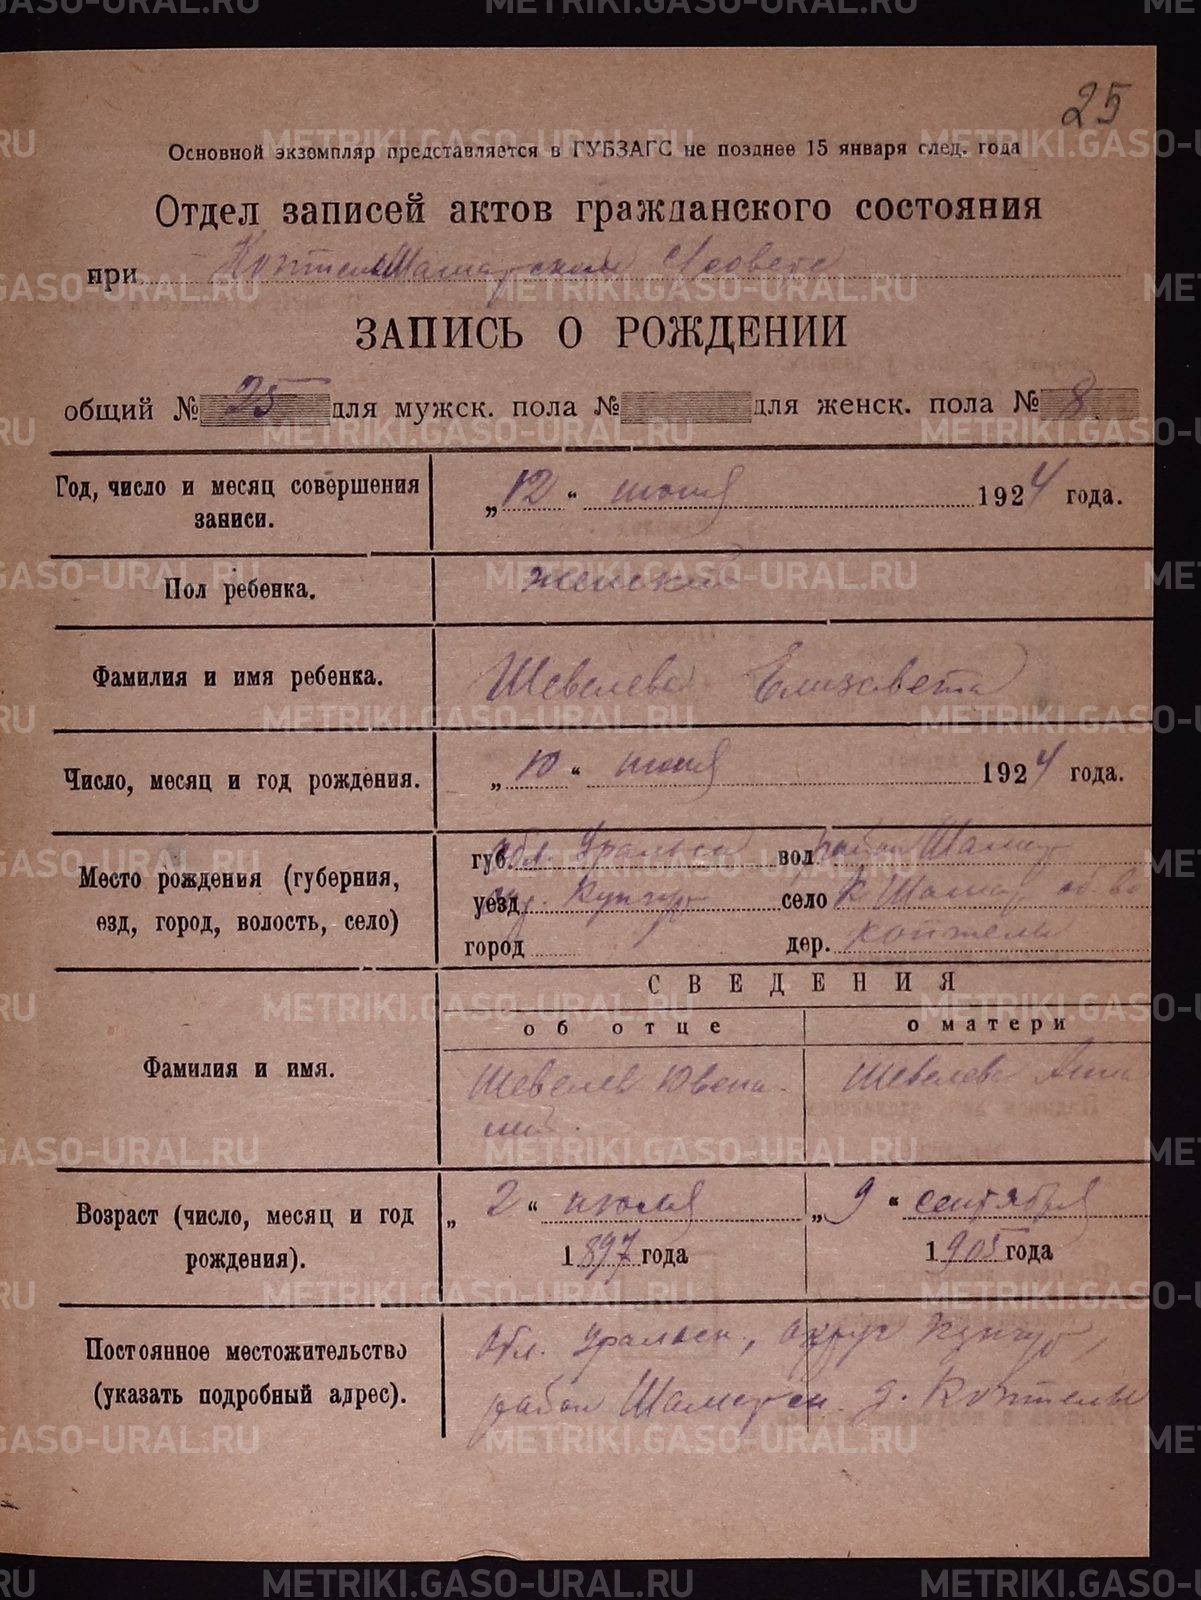 25
Основной экземпляр представляется в ГУБЗАГС не позднее 15 января след. года
Отдел записей актов гражданского состояния
при
ЗАПИСЬ О РОЖДЕНИИ
общий № 25 для мужск. пола № для женск. пола № 8
Год, число и месяц совершения записи.
„12“ июня 1924 года.
Пол ребенка.
женский
Фамилия и имя ребенка.
Шевелева Елизавета
Число, месяц и год рождения.
„10“ июня 1924 года.
Место рождения (губерния,
езд, город, волость, село)
губ. обл. Уральск вол. район Шамар
уезд Кунгур село К Шамар
город дер. Коптелы
СВЕДЕНИЯ
об отце
о матери
Фамилия и имя.
Шевелев Ювена-
лий.
Шевелева Анна
Возраст (число, месяц и год
рождения).
„2“ июля
1897 года
„9“ сентября
1905 года
Постоянное местожительство
(указать подробный адрес).
Обл. Уральск., округ Кунгур,
район Шамарск. д. Коптелы
METRIKI.GASO-URAL.RU